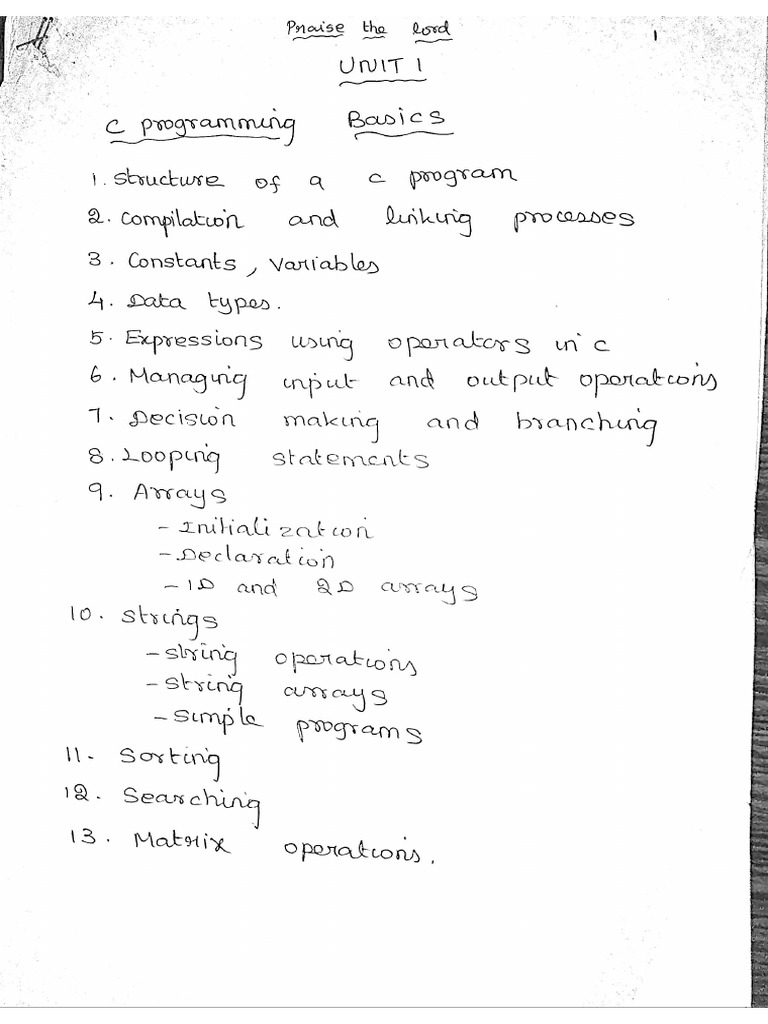 Praise the lord
1
UNIT 1
C programming Basics
1. Structure of a c program
2. Compilation and linking processes
3. Constants, Variables
4. Data types.
5. Expressions using operators in c
6. Managing input and output operations
7. Decision making and branching
8. Looping statements
9. Arrays
- Initialization
- Declaration
- 1D and 2D arrays
10. Strings
- String operations
- String arrays
- Simple programs
11. Sorting
12. Searching
13. Matrix operations.